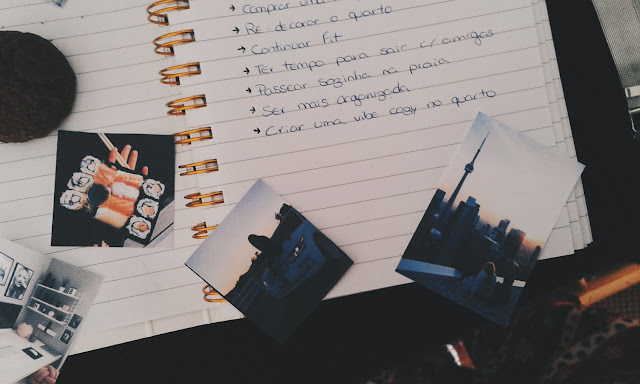 → Comprar uma
→ Re-decorar o quarto
→ Continuar fit
→ Ter tempo para sair c/ amigas
→ Passear sozinha na praia
→ Ser mais organizada
→ Criar uma vibe cozy no quarto